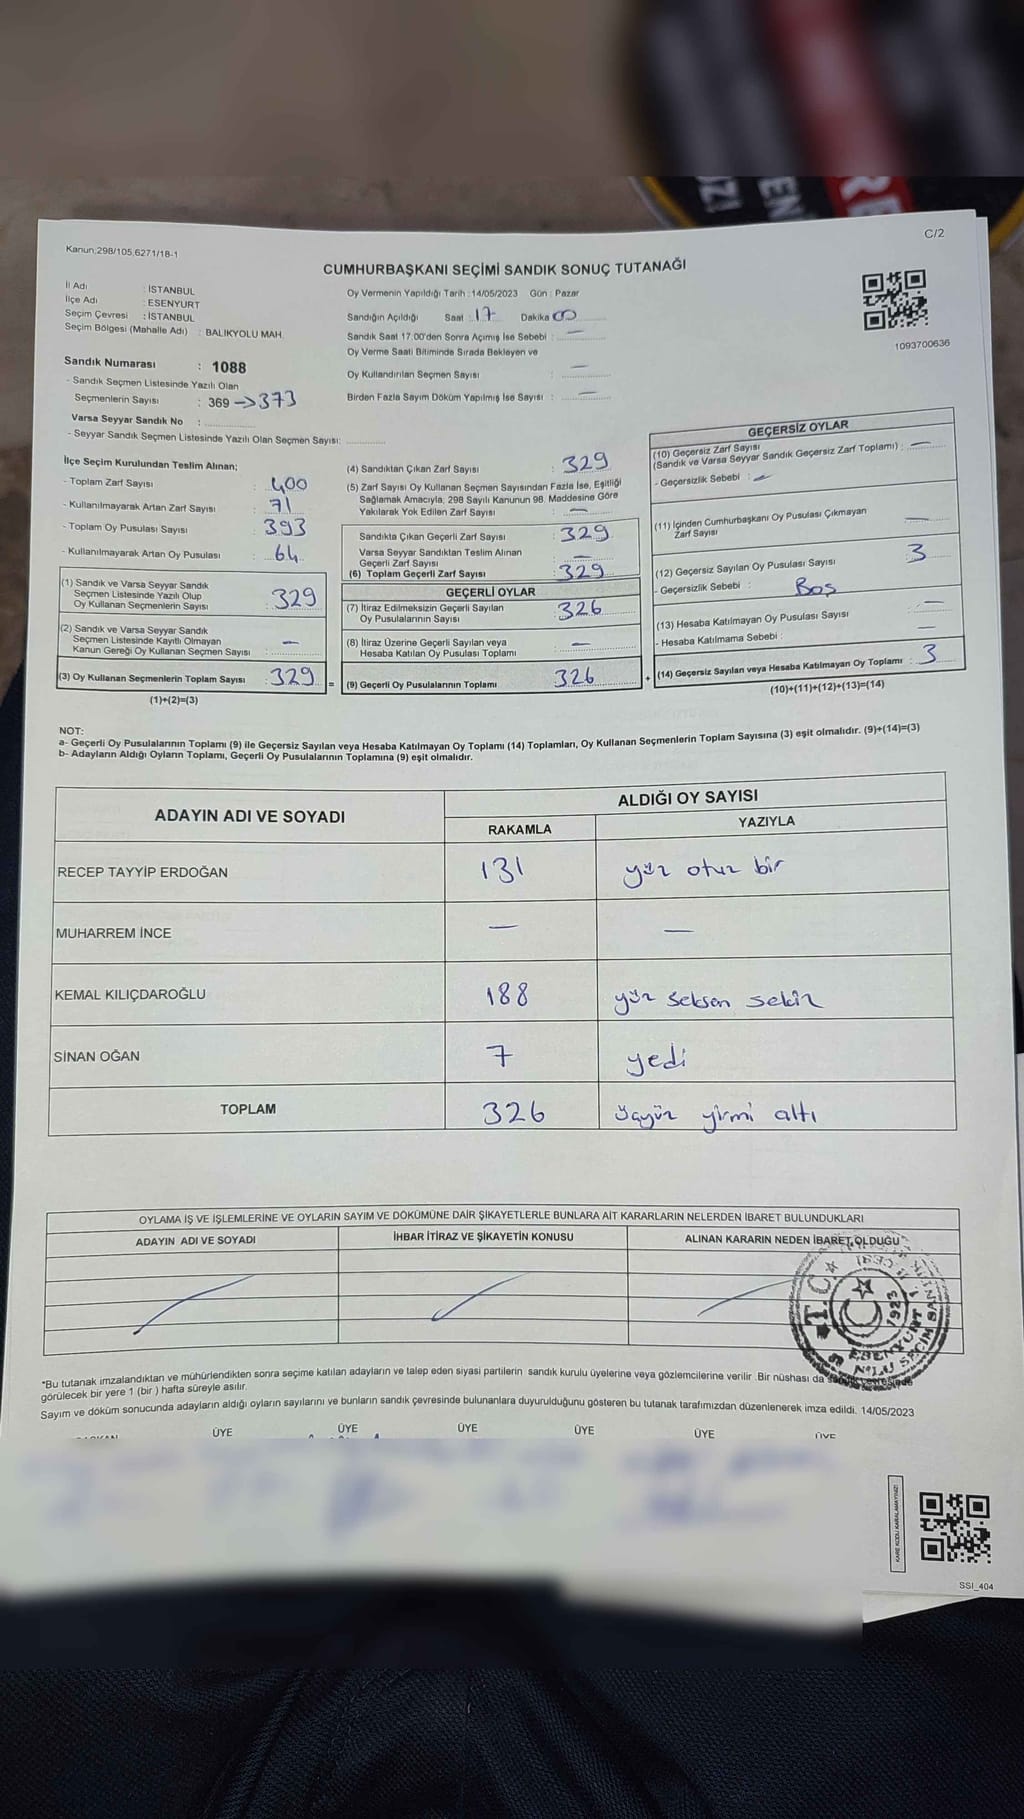 UZ!
EN
RE
C/2
Kanun;298/105,6271/18-1
CUMHURBAŞKANI SEÇİMİ SANDIK SONUÇ TUTANAĞI
İl Adı : İSTANBUL
İlçe Adı : ESENYURT
Seçim Çevresi : İSTANBUL
Seçim Bölgesi (Mahalle Adı) : BALIKYOLU MAH.
Oy Vermenin Yapıldığı Tarih : 14/05/2023 Gün : Pazar
Sandığın Açıldığı Saat : 17 Dakika 00
Sandık Saat 17.00'den Sonra Açımış İse Sebebi : —
Oy Verme Saati Bitiminde Sırada Bekleyen ve
Oy Kullandırılan Seçmen Sayısı : —
Birden Fazla Sayım Döküm Yapılmış İse Sayısı : —
1093700636
Sandık Numarası : 1088
- Sandık Seçmen Listesinde Yazılı Olan
Seçmenlerin Sayısı : 369 → 373
Varsa Seyyar Sandık No :
- Seyyar Sandık Seçmen Listesinde Yazılı Olan Seçmen Sayısı:
İlçe Seçim Kurulundan Teslim Alınan;
- Toplam Zarf Sayısı : 400
- Kullanılmayarak Artan Zarf Sayısı : 71
- Toplam Oy Pusulası Sayısı : 393
- Kullanılmayarak Artan Oy Pusulası : 64
(1) Sandık ve Varsa Seyyar Sandık
Seçmen Listesinde Yazılı Olup
Oy Kullanan Seçmenlerin Sayısı : 329
(2) Sandık ve Varsa Seyyar Sandık
Seçmen Listesinde Kayıtlı Olmayan
Kanun Gereği Oy Kullanan Seçmen Sayısı : —
(3) Oy Kullanan Seçmenlerin Toplam Sayısı : 329 =
(1)+(2)=(3)
(4) Sandıktan Çıkan Zarf Sayısı : 329
(5) Zarf Sayısı Oy Kullanan Seçmen Sayısından Fazla İse, Eşitliği
Sağlamak Amacıyla; 298 Sayılı Kanunun 98. Maddesine Göre
Yakılarak Yok Edilen Zarf Sayısı : —
Sandıkta Çıkan Geçerli Zarf Sayısı : 329
Varsa Seyyar Sandıktan Teslim Alınan
Geçerli Zarf Sayısı : —
(6) Toplam Geçerli Zarf Sayısı : 329
GEÇERLİ OYLAR
(7) İtiraz Edilmeksizin Geçerli Sayılan
Oy Pusulalarının Sayısı : 326
(8) İtiraz Üzerine Geçerli Sayılan veya
Hesaba Katılan Oy Pusulası Toplamı : —
(9) Geçerli Oy Pusulalarının Toplamı : 326 +
GEÇERSİZ OYLAR
(10) Geçersiz Zarf Sayısı
(Sandık ve Varsa Seyyar Sandık Geçersiz Zarf Toplamı) : —
- Geçersizlik Sebebi : —
(11) İçinden Cumhurbaşkanı Oy Pusulası Çıkmayan
Zarf Sayısı : —
(12) Geçersiz Sayılan Oy Pusulası Sayısı : 3
- Geçersizlik Sebebi : Boş
(13) Hesaba Katılmayan Oy Pusulası Sayısı : —
- Hesaba Katılmama Sebebi : —
(14) Geçersiz Sayılan veya Hesaba Katılmayan Oy Toplamı : 3
(10)+(11)+(12)+(13)=(14)
NOT:
a- Geçerli Oy Pusulalarının Toplamı (9) ile Geçersiz Sayılan veya Hesaba Katılmayan Oy Toplamı (14) Toplamları, Oy Kullanan Seçmenlerin Toplam Sayısına (3) eşit olmalıdır. (9)+(14)=(3)
b- Adayların Aldığı Oyların Toplamı, Geçerli Oy Pusulalarının Toplamına (9) eşit olmalıdır.
ADAYIN ADI VE SOYADI
ALDIĞI OY SAYISI
RAKAMLA YAZIYLA
RECEP TAYYİP ERDOĞAN 131 yüz otuz bir
MUHARREM İNCE — —
KEMAL KILIÇDAROĞLU 188 yüz seksen sekiz
SİNAN OĞAN 7 yedi
TOPLAM 326 üçyüz yirmi altı
OYLAMA İŞ VE İŞLEMLERİNE VE OYLARIN SAYIM VE DÖKÜMÜNE DAİR ŞİKAYETLERLE BUNLARA AİT KARARLARIN NELERDEN İBARET BULUNDUKLARI
ADAYIN ADI VE SOYADI İHBAR İTİRAZ VE ŞİKAYETİN KONUSU ALINAN KARARIN NEDEN İBARET OLDUĞU
T.C.
1923
ESENYURT 1
NOLU SEÇİM SAN
*Bu tutanak imzalandıktan ve mühürlendikten sonra seçime katılan adayların ve talep eden siyasi partilerin sandık kurulu üyelerine veya gözlemcilerine verilir .Bir nüshası da sandık çevresinde
görülecek bir yere 1 (bir ) hafta süreyle asılır.
Sayım ve döküm sonucunda adayların aldığı oyların sayılarını ve bunların sandık çevresinde bulunanlara duyurulduğunu gösteren bu tutanak tarafımızdan düzenlenerek imza edildi. 14/05/2023
BAŞKAN ÜYE ÜYE ÜYE ÜYE ÜYE ÜYE
KARE KODU KARALAMAYINIZ!
SSI_404